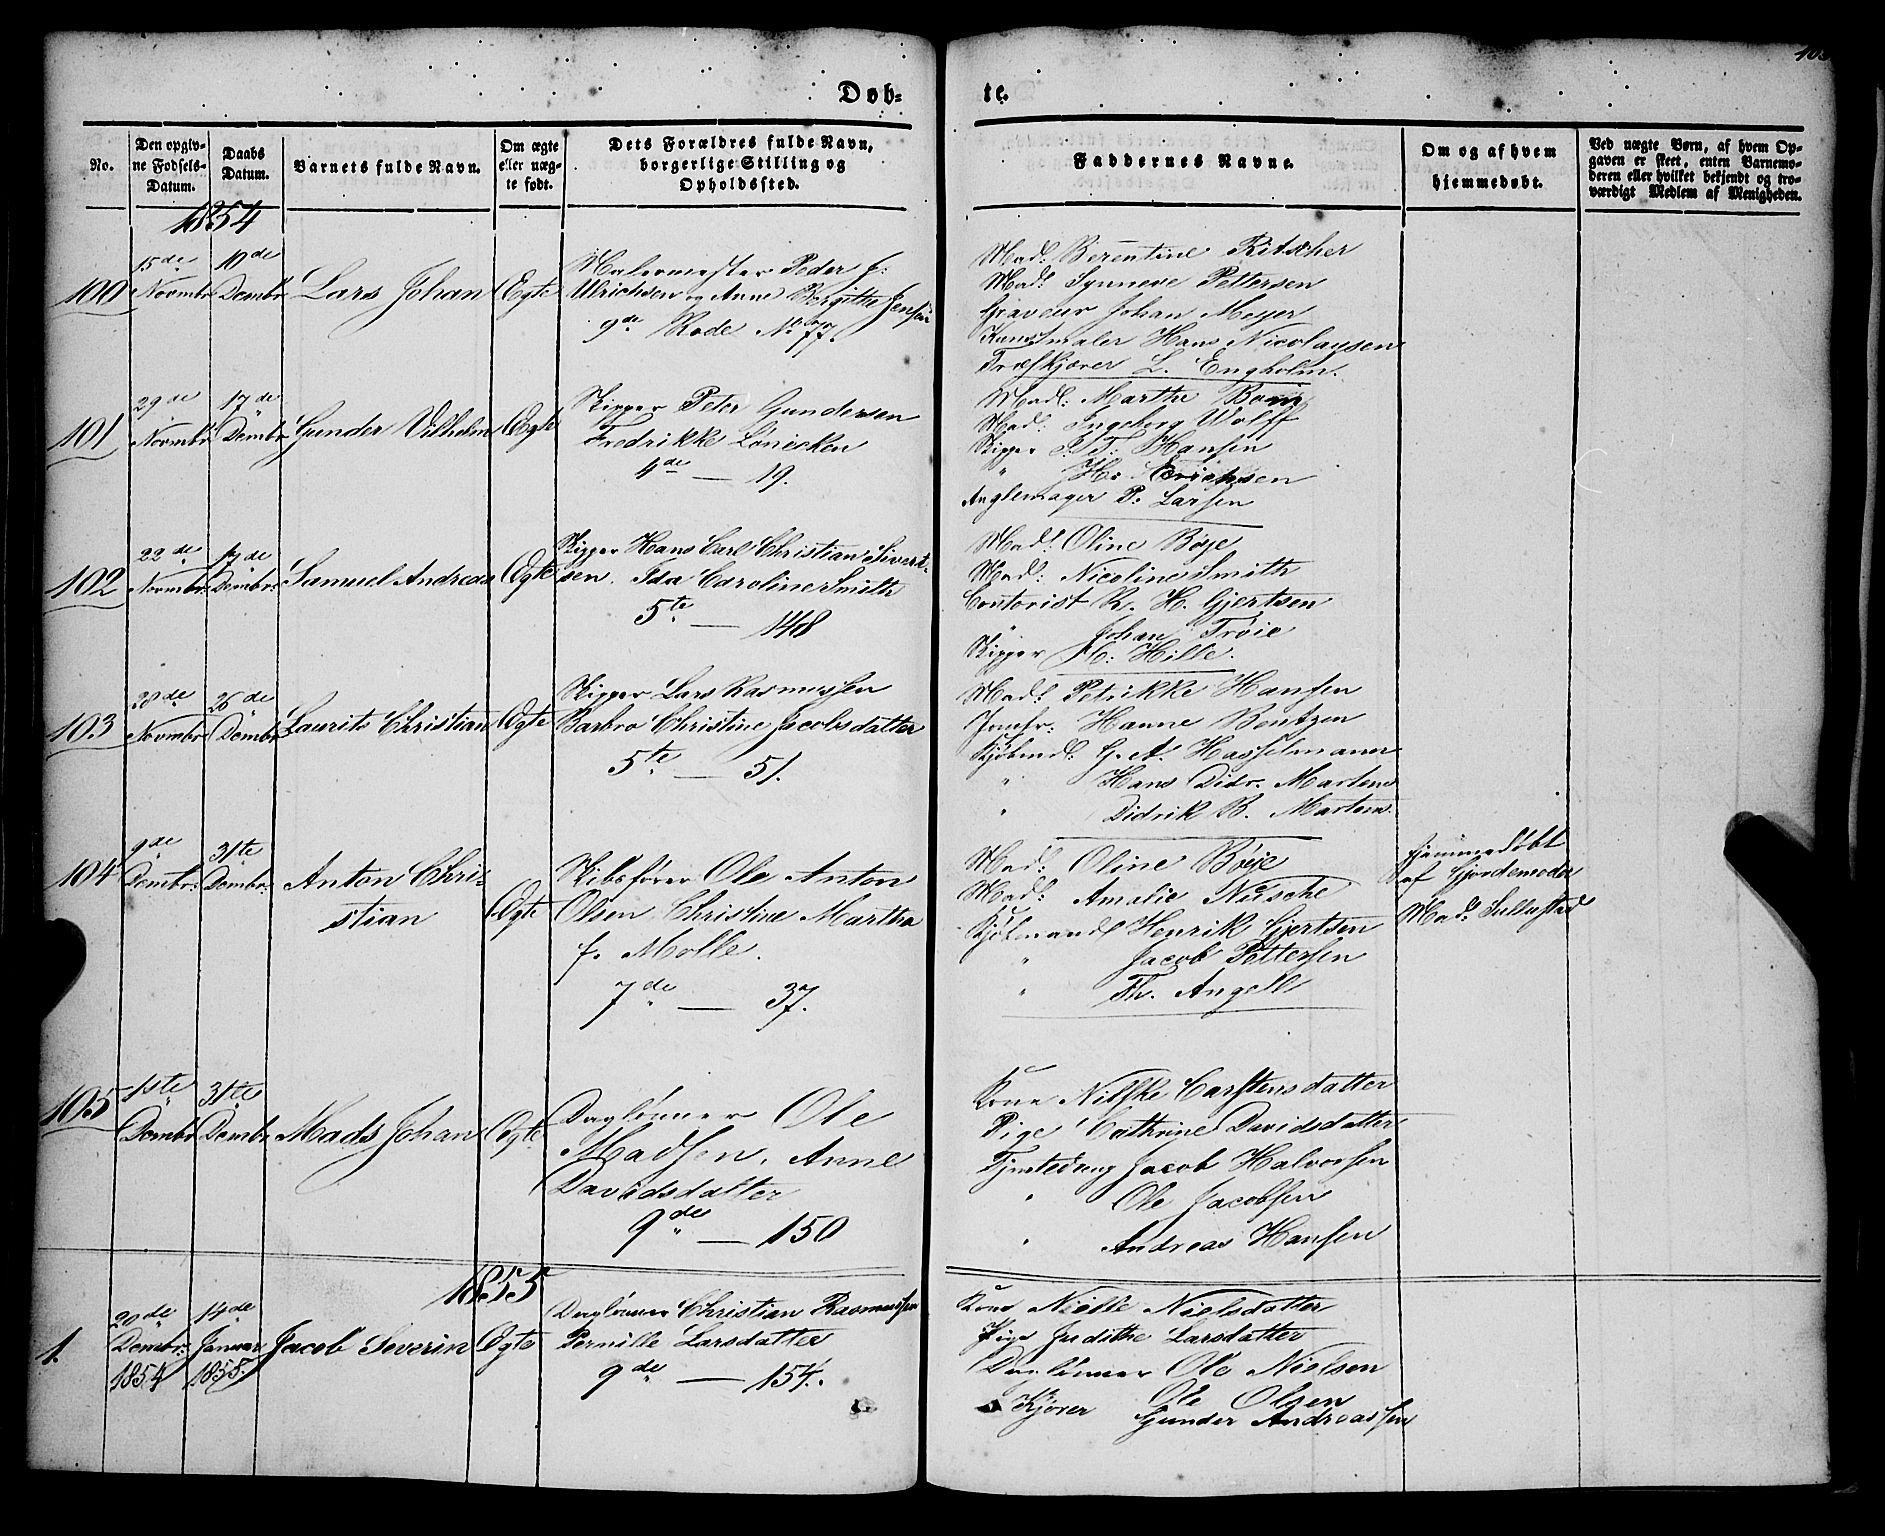 103
Døb-
te.
No.
Den opgiv-
ne Fødsels-
Datum.
Daabs
Datum.
Barnets fulde Navn.
Om ægte
eller uæg-
te født.
Dets Forældres fulde Navn,
borgerlige Stilling og
Opholdssted.
Faddernes Navne.
Om og af hvem
hjemmedøbt.
Ved uægte Børn, af hvem Op-
gaven er skeet, enten Barnemo-
deren eller hvilket bekjendt og tro-
værdigt Medlem af Menigheden.
1854
100
15de
Novmbr
10de
Dcmbr
Lars Johan
Ægte
Malermester Peder f:
Ulrichsen og Anne Bergithe Jensen
9de Rode No 77.
Mad: Berentine Ritscher
Mad: Synneve Pettersen
Graveur Johan Meyer
Kunstmaler Hans Nicolaysen
Træskjærer L. Engholm.
101
29de
Novmbr
17de
Dcmbr
Gunder Vilhelm
Ægte
Skipper Peter Gundersen
Fredrikke Lönicken
4de — 19.
Mad: Marthe
Mad: Ingeborg Wolff
Skipper J. T. Hansen
" H: Erichsen
Anglemager P. Larsen
102
22de
Novmbr:
17de
Dcmbr:
Samuel Andreas
Ægte
Skipper Hans Carl Christian Sivert-
sen. Ida Caroline Smith
5te — 148
Mad: Oline Böje
Mad: Nicoline Smith
Contorist R. H. Gjertsen
" Johan Tröie
Skipper H: Hille.
103
28de
Novmbr
26de
Dcmbr
Laurits Christian
Ægte
Skipper Lars Rasmussen
Barbro Christine Jacobsdatter
5te — 51.
Mad: Petrikke Hansen
Jomfr: Hanne Bentzen
Kjöbmd: G. A. Hasselmaner
" Hans Didr. Martens
" Didrik B. Martens.
104
9de
Dcmbr:
31te
Dcmbr:
Anton Chri-
stian
Ægte
Skibsfører Ole Anton
Olsen Christine Martha
f. Molle.
7de — 37.
Mad: Oline Böje
Mad: Amalie Nitsche
Kjöbmand Henrik Gjertsen
" Jacob Pettersen
" Th. Angell
Hjemmedöbt
af Gjordemoder
Mad:
105
1ste
Dcmbr
31te
Dcmbr
Mads Johan
Ægte
Daglönner Ole
Madsen, Anne
Davidsdatter
9de — 150
Kone Nilske Carstensdatter
Pige Cathrine Davidsdatter
Tjenstedreng Jacob Halvorsen
" Ole Jacobsen
" Andreas Hansen
1855
1.
20de
Dcmbr:
1854
14de
Januar
1855.
Jacob Severin
Ægte
Daglönner Christian Rasmussen
Pernille Larsdatter
9de — 154.
Kone Nielle Nielsdatter
Pige Judithe Larsdatter
Daglönner Ole Nielsen
" Ole Olsen
Kjører Gunder Andreassen